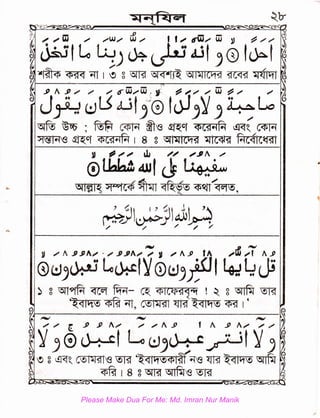 মানযিল ২৮
اَحَدًا ۞ وَّاَنَّهٗ تَعٰلٰى جَدُّ رَبِّنَا مَا اتَّخَذَ
শরীক করব না। ৩ ঃ আর অবশ্যই আমাদের রবের মর্যাদা
صَاحِبَةً وَّلَا وَلَدًا ۞ وَّاَنَّهٗ كَانَ يَقُوْلُ
অতি উচ্চ ; তিনি কোন স্ত্রীও গ্রহণ করেননি এবং কোন
সন্তানও গ্রহণ করেননি। ৪ ঃ আমাদের মাঝের নির্বোধেরা
سَفِيْهُنَا عَلَى اللهِ شَطَطًا ۞
আল্লাহ্ সম্পর্কে সীমা বহির্ভূত কথা বলত,
بِسْمِ اللهِ الرَّحْمٰنِ الرَّحِيْمِ
قُلْ يٰٓاَيُّهَا الْكٰفِرُوْنَ ۞ لَآ اَعْبُدُ مَا تَعْبُدُوْنَ ۞
১ ঃ আপনি বলে দিন- হে কাফেরবৃন্দ ! ২ ঃ আমি তার
‘ইবাদত করি না, তোমরা যার ‘ইবাদত কর।’
وَلَآ اَنْتُمْ عٰبِدُوْنَ مَآ اَعْبُدُ ۞ وَلَآ
৩ ঃ এবং তোমরাও তার ‘ইবাদতকারী নও যার ‘ইবাদত আমি
করি। ৪ ঃ আর আমিও তার
Please Make Dua For Me: Md. Imran Nur Manik